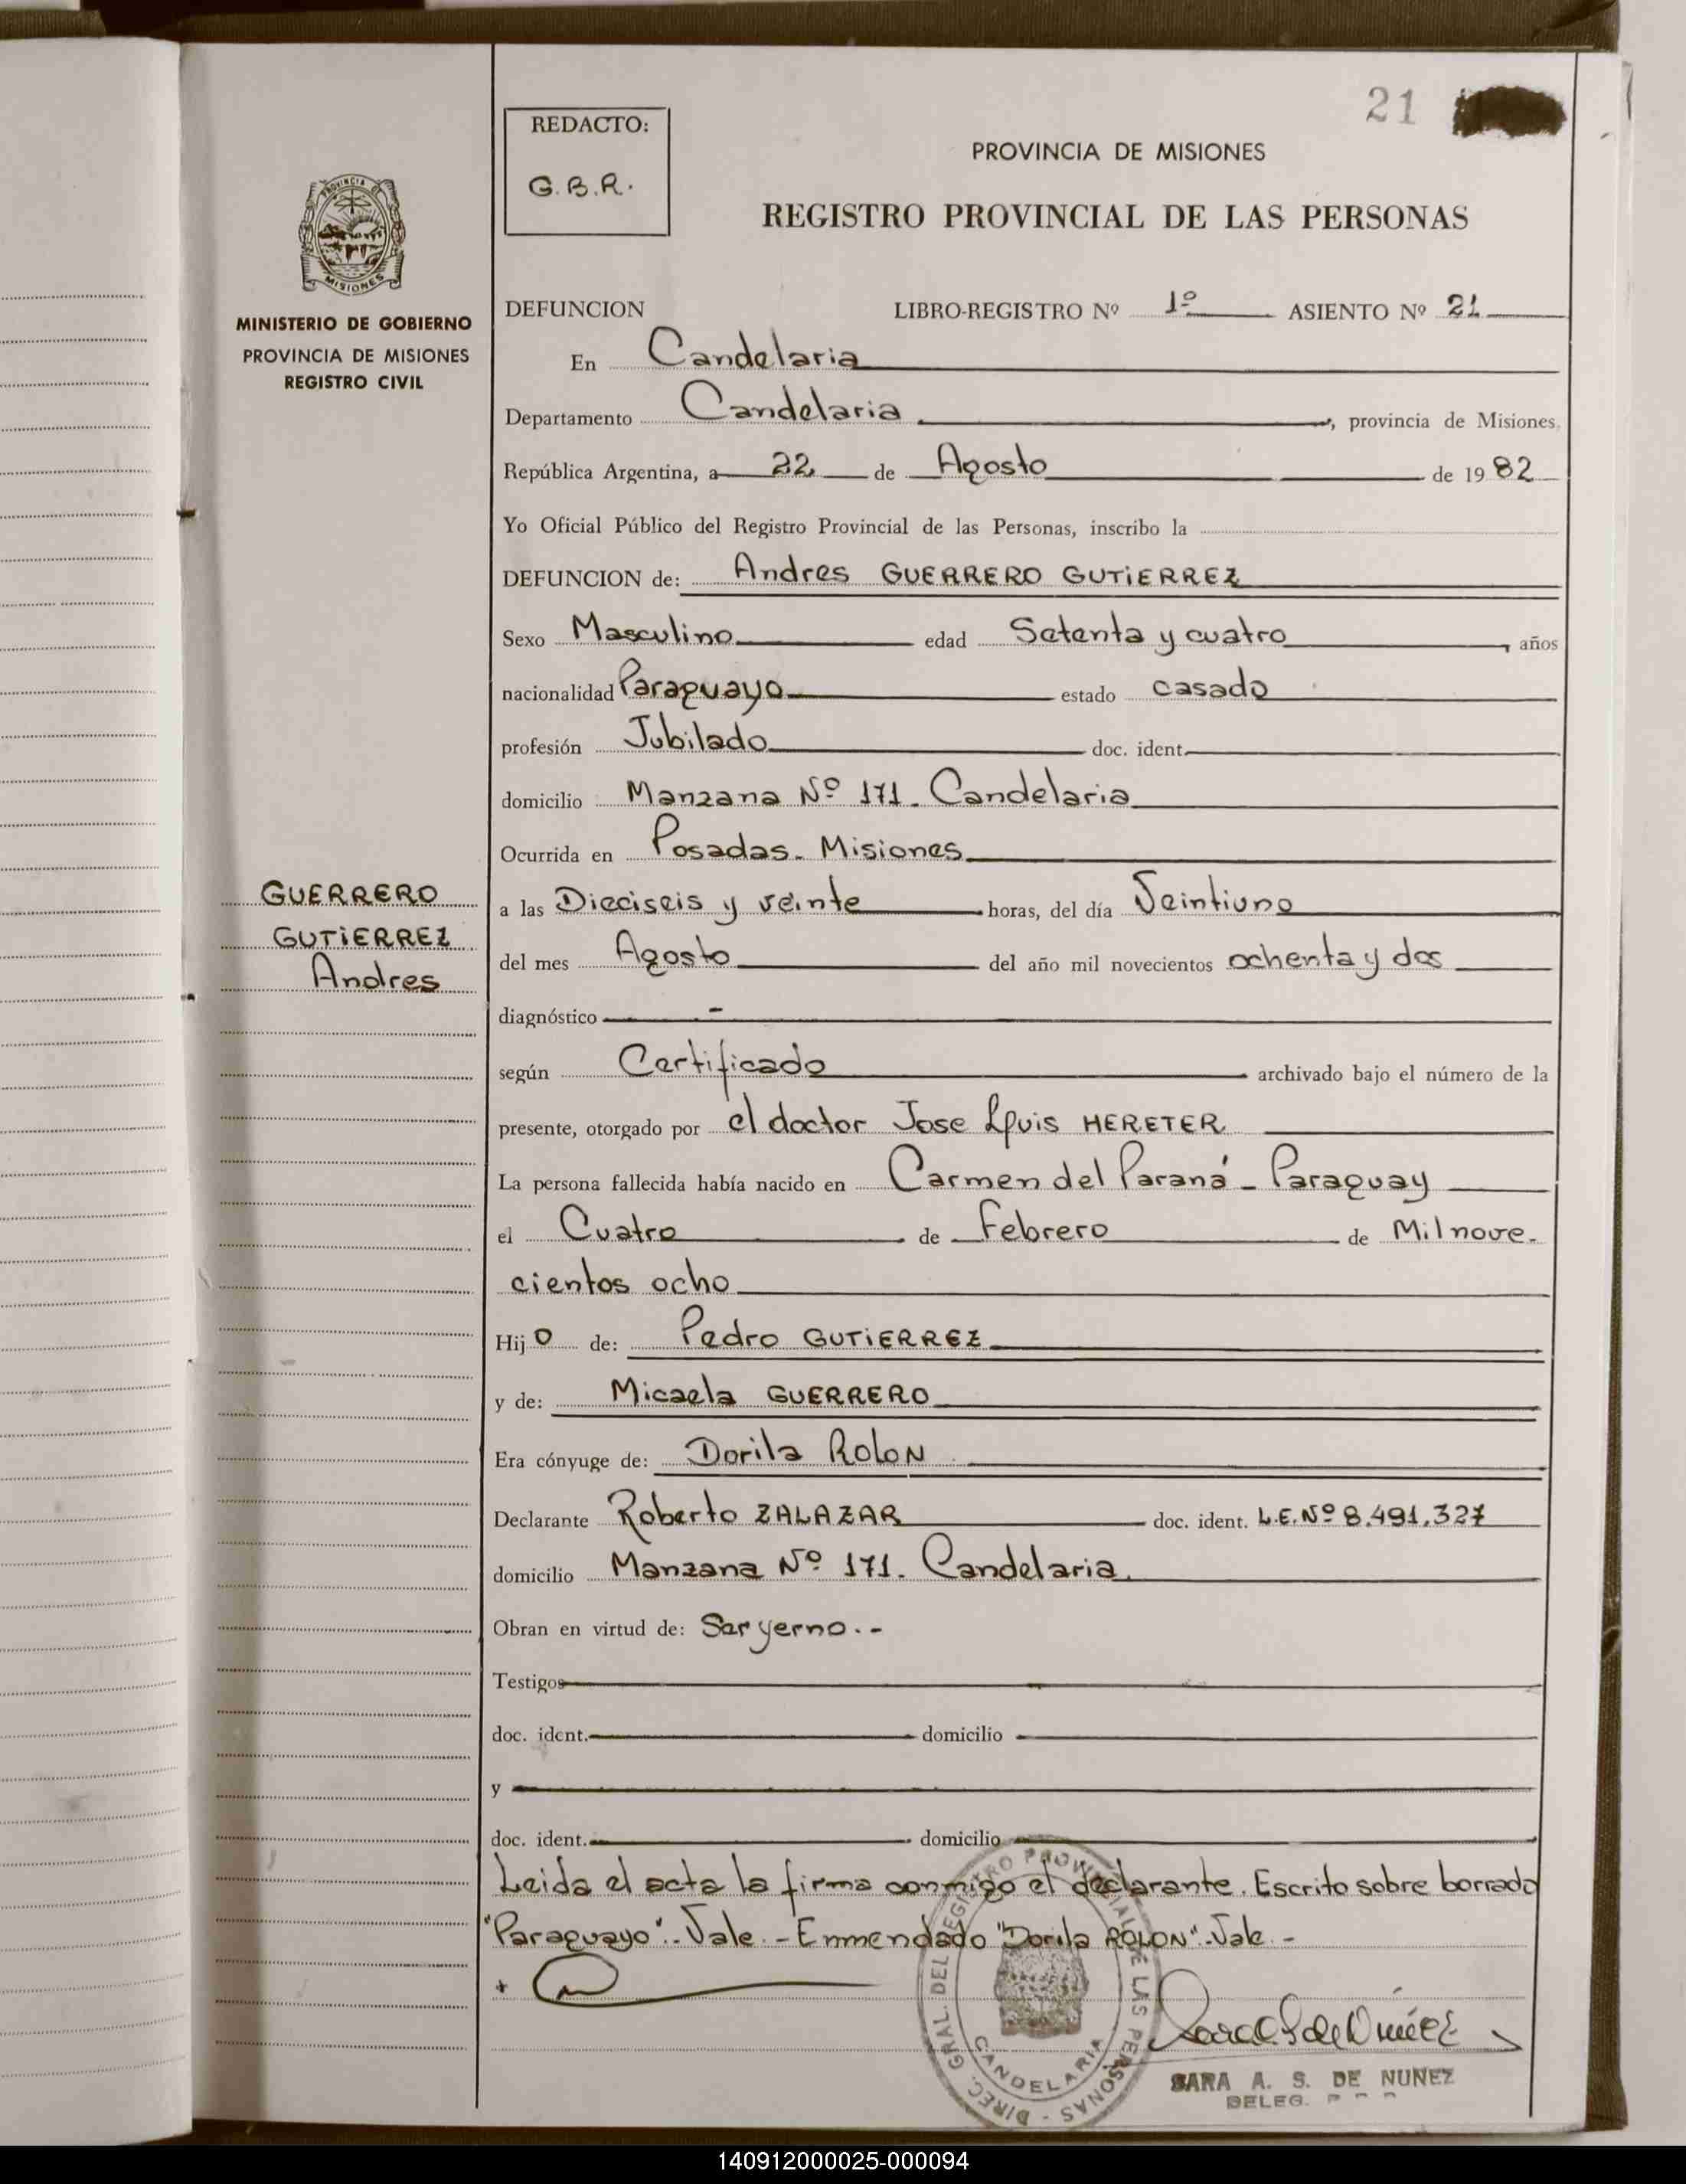 21
REDACTO:
G.B.R.
PROVINCIA DE MISIONES
REGISTRO PROVINCIAL DE LAS PERSONAS
PROVINCIA DE
MISIONES
MINISTERIO DE GOBIERNO
PROVINCIA DE MISIONES
REGISTRO CIVIL
GUERRERO
GUTiERREZ
Andres
DEFUNCION LIBRO-REGISTRO Nº 1º ASIENTO Nº 21
En Candelaria
Departamento Candelaria, provincia de Misiones,
República Argentina, a 22 de Agosto de 1982
Yo Oficial Público del Registro Provincial de las Personas, inscribo la
DEFUNCION de: Andres GUERRERO GUTiERREZ
Sexo Masculino edad Setenta y cuatro, años
nacionalidad Paraguayo estado casado
profesión Jubilado doc. ident.
domicilio Manzana Nº 171. Candelaria
Ocurrida en Posadas. Misiones
a las Dieciseis y veinte horas, del día Veintiuno
del mes Agosto del año mil novecientos ochenta y dos
diagnóstico -
según Certificado archivado bajo el número de la
presente, otorgado por el doctor Jose Luis HERETER
La persona fallecida había nacido en Carmen del Paraná - Paraguay
el Cuatro de Febrero de Mil nove-
cientos ocho
Hijo de: Pedro GUTiERREZ
y de: Micaela GUERRERO
Era cónyuge de: Dorila ROLON
Declarante Roberto ZALAZAR doc. ident. L.E. Nº 8.491.327
domicilio Manzana Nº 171. Candelaria.
Obran en virtud de: Ser yerno.-
Testigos
doc. ident. domicilio
y
doc. ident. domicilio
Leida el acta la firma conmigo el declarante. Escrito sobre borrado
"Paraguayo".-Vale.-Enmendado "Dorila ROLON".-Vale.-
DIREC. GRAL. DEL REGISTRO PROVINCIAL DE LAS PERSONAS
CANDELARIA
SARA A. S. DE NUÑEZ
DELEG.
140912000025-000094